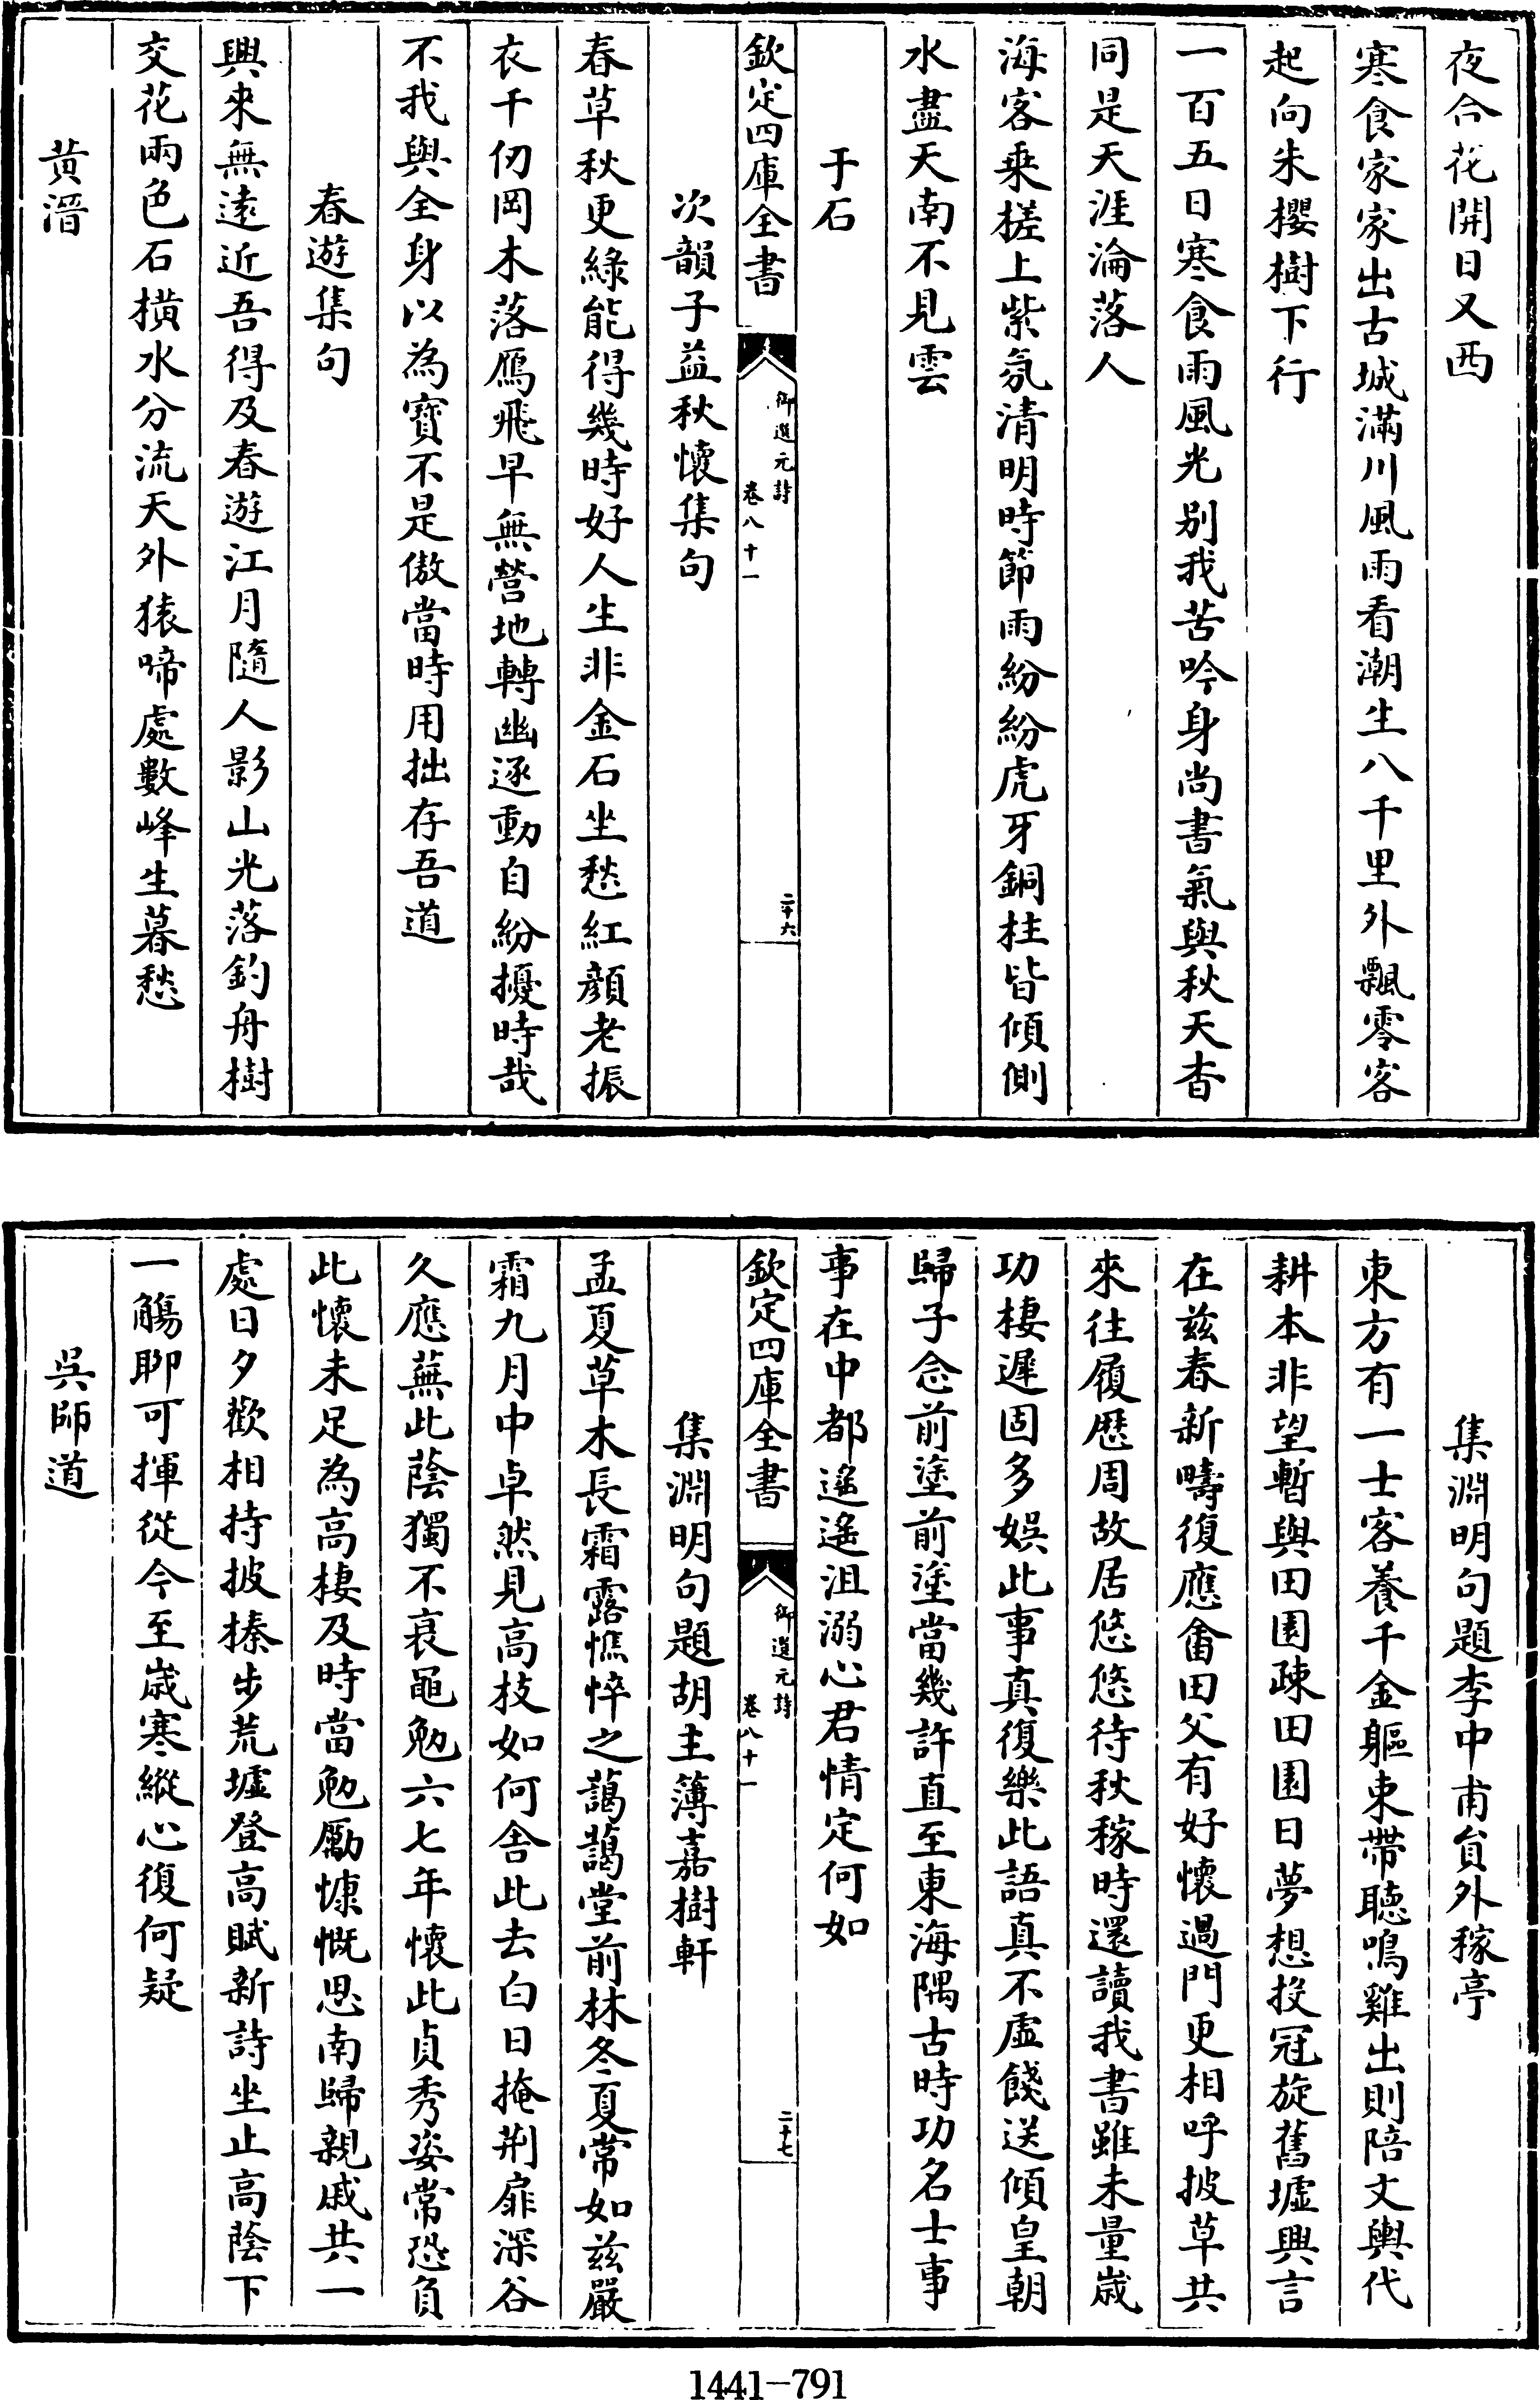 夜合花開日又西
寒食家家出古城滿川風雨看潮生八千里外飄零客
起向朱櫻樹下行
一百五日寒食雨風光別我苦吟身尚書氣與秋天杳
同是天涯淪落人
海客乗槎上紫氛清明時節雨紛紛虎牙銅柱皆傾側
水盡天南不見雲
于石
欽定四庫全書
御選元詩
卷八十一
二十六
次韻子益秋懷集句
春草秋更綠能得幾時好人生非金石坐愁紅顔老振
衣千仞岡木落鴈飛早無營地轉幽逐動自紛擾時哉
不我與全身以為寶不是傲當時用拙存吾道
春遊集句
興來無逺近吾得及春遊江月隨人影山光落釣舟樹
交花兩色石橫水分流天外猿啼處數峰生暮愁
黄溍
集淵明句題李中甫貟外稼亭
東方有一士客養千金軀束帶聽鳴雞出則陪文輿代
耕本非望暫與田園疎田園日夢想投冠旋舊墟興言
在兹春新疇復應畬田父有好懷過門更相呼披草共
來往履歴周故居悠悠待秋稼時還讀我書雖未量嵗
功棲遲固多娯此事真復樂此語真不虛餞送傾皇朝
歸子念前塗前塗當幾許直至東海隅古時功名士事
事在中都遥遥沮溺心君情定何如
欽定四庫全書
御選元詩
卷八十一
二十七
集淵明句題胡主簿嘉樹軒
孟夏草木長霜露憔悴之藹藹堂前林冬夏常如兹嚴
霜九月中卓然見高枝如何舍此去白日掩荆扉深谷
久應蕪此蔭獨不衰黽勉六七年懷此貞秀姿常恐負
此懷未足為高棲及時當勉勵慷慨思南歸親戚共一
處日夕歡相持披榛步荒墟登高賦新詩坐止高蔭下
一觴聊可揮從今至嵗寒縱心復何疑
吳師道
1441-791